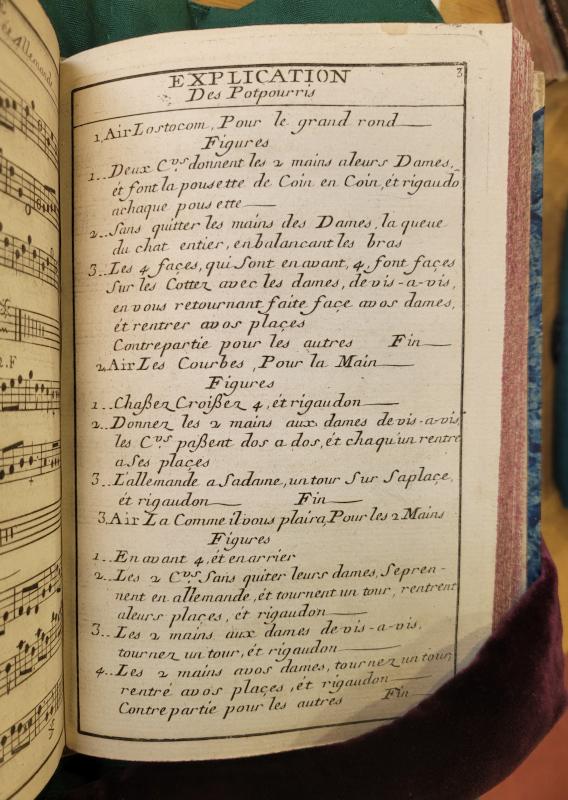 l'Allemande
2. F
3
EXPLICATION
Des Potpourris
1, Air Lostocom, Pour le grand rond
Figures
1.. Deux C.vs donnent les 2 mains aleurs Dames,
ét font la pousette de Coin en Coin, ét rigaudo
achaque pousette
2.. Sans quitter les mains des Dames, la queue
du chat entier, en balancant les bras
3.. Les 4 façes, qui Sont en avant, 4, font façes
Sur les Cottez avec les dames, de vis-a-vis,
en vous retournant faite façe avos dames,
ét rentrer avos plaçes
Contrepartie pour les autres Fin
2, Air Les Courbes, Pour la Main
Figures
1.. Chaßez Croißez 4, ét rigaudon
2.. Donnez les 2 mains aux dames de vis-a-vis,
les C.vs paßent dos a dos, ét chaqu'un rentre
a Ses plaçes
3.. L'allemande a Sadame, un tour Sur Saplaçe,
ét rigaudon Fin
3, Air La Comme il vous plaira, Pour les 2 Mains
Figures
1.. En avant 4, ét en arrier
2.. Les 2 C.vs Sans quiter leurs dames, Sepren-
nent en allemande, ét tournent un tour, rentrent
aleurs plaçes, ét rigaudon
3.. Les 2 mains aux dames de vis-a-vis,
tournez un tour, ét rigaudon
4.. Les 2 mains avos dames, tournez un tour,
rentré avos plaçes, ét rigaudon
Contre partie pour les autres Fin